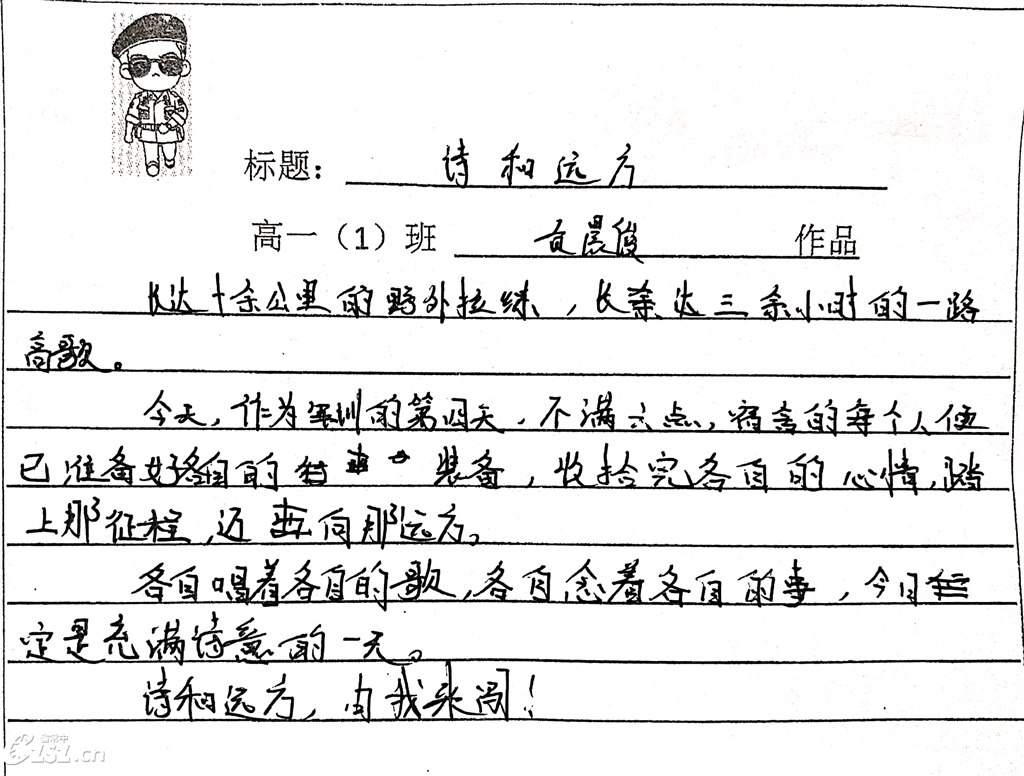 标题：诗和远方
高一（1）班 晨俊 作品
长达十余公里的野外拉练，长达三余小时的一路
高歌。
今天，作为军训的第四天，不满六点，宿舍的每个人便
已准备好各自的装备，收拾完各自的心情，踏
上那征程，迈向那远方。
各自唱着各自的歌，各自念着各自的事，今日
定是充满诗意的一天。
诗和远方，由我来闯！
省常中
LSL.cn